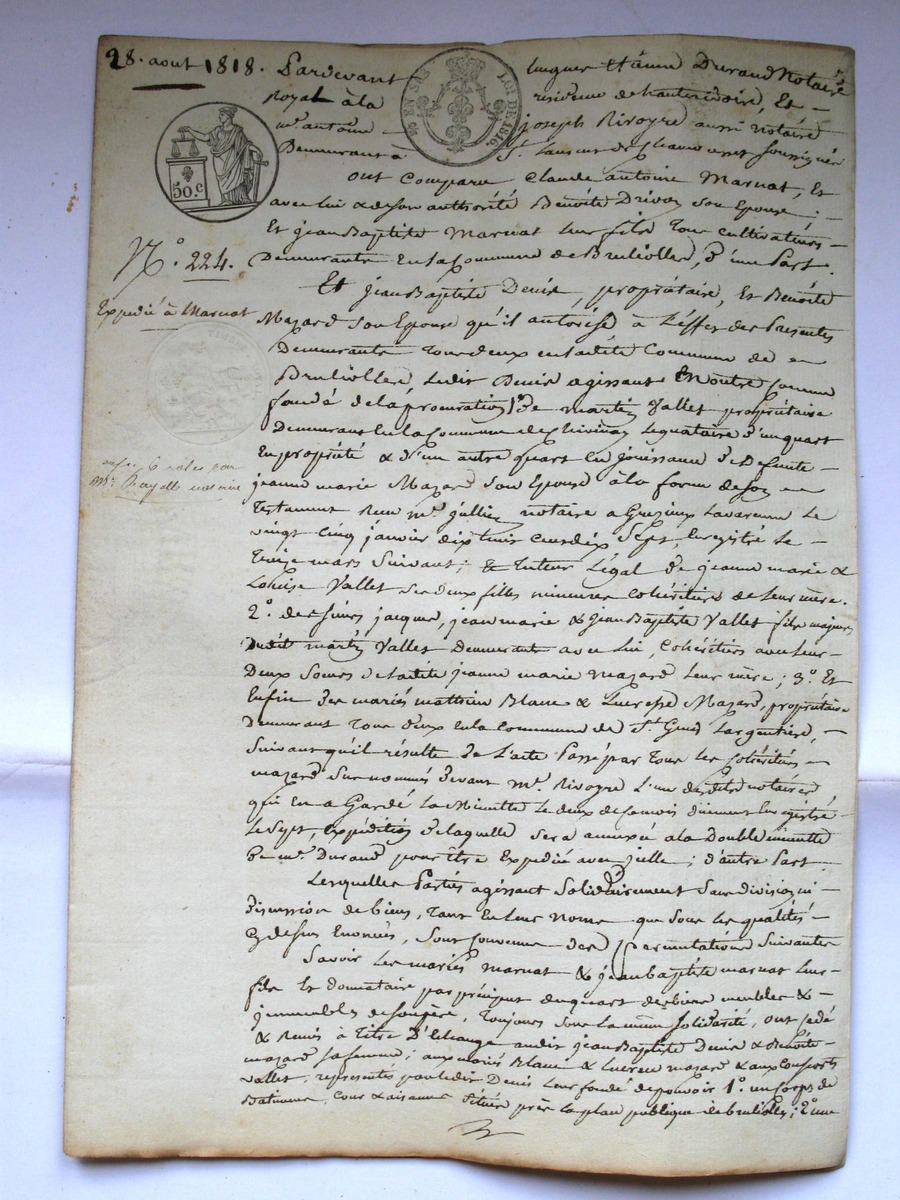 28. aout 1818. Pardevant hugues Etienne Durand Notaire
Royal à la residence de hauterivoire, Et -
me antoine - joseph Rivoyre aussi notaire
Demeurant à St. Laurent de Chamousset soussignés
EN SUS
LOI DE 1816.
50.c
ont comparu Claude antoine Marnat, Et
avec lui & de son authorité Benoite Drevon son Epouse ;
Et jean Baptiste Marnat leur fils Tous cultivateurs -
Demeurants En la Commune de Brulliolles, d'une Part.
No. 224.
Expedié à Marnat
Et jean Baptiste Denis, propriétaire, Et Benoite
Mazard son Epouse qu'il autorise à L'effet des Presentes
Demeurants Tous deux en ladite Commune de
Brulliolles, Ledit Denis agissant En outre comme
fondé de la procuration 1° de martin Vallet propriétaire
Demeurant En la Commune de Legataire d'un quart
En propriété & d'un autre quart En jouissance de Defunte -
jeanne marie Mazard son Epouse à la forme de son
Testament Reçu me. jullien notaire a Grezieux Lavarenne Le
vingt Cinq janvier dix huit cent dix Sept, Enregistré Le -
Treize mars Suivant ; & Tuteur Légal de jeanne marie &
Louise Vallet ses deux filles mineures Cohéritières de Leur mère.
2° des sieurs jacques, jean marie & jean Baptiste Vallet fils majeurs
Dudit martin Vallet Demeurants avec Lui, Cohéritiers avec leurs
Deux Soeurs de ladite jeanne marie mazard Leur mère ; 3° Et
Enfin des mariés mathieu Blanc & Lucresse Mazard, propriétaires
Demeurant Tous deux En la Commune de St. Genis Largentiere,
Suivant qu'il résulte de L'acte Passé par Tous les Cohéritiers -
mazard Sus nommés devant me. Rivoyre L'un desdits notaires
qui En a Gardé La Minutte Le deux de ce mois duement Enregistré
Le Sept, expédition de laquelle sera annexée a la Double minutte
De me. Durand pour être Expediée avec jcelle ; d'autre Part
Lesquelles Parties agissant Solidairement Sans division ni
discussion de biens, Tant En leur Noms que Sous les qualités
Cy dessus Enoncées, Sont convenues des permutations Suivantes
Savoir Les mariés marnat & jean baptiste marnat Leur
fils Et donnataire par préciput du quart des biens meubles & -
jmmeubles de son père, Toujours Sous la même Solidarité, ont cedé
& Remis à Titre D'Echange audit jean Baptiste Denis & Benoite
mazard sa femme ; aux mariés Blanc & Lucresse mazard & aux Consorts
vallet, représentés par ledit Denis Leur fondé de pouvoir 1° un Corps de
Batiment, Cour & aisances Situé près la place publique de brulliolles ; 2° une